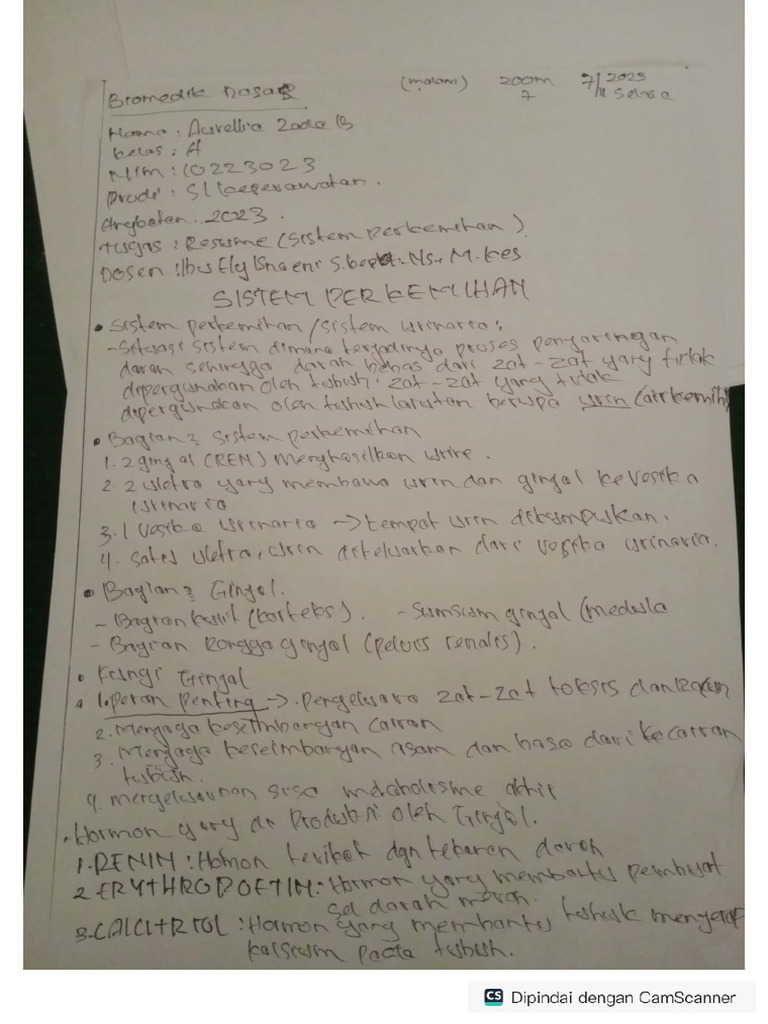 Biomedik Dasar (malam) zoom 7/11 2025
7 Selasa
Nama : Aurellia Zada B
Kelas : A
Nim : 10223023
Prodi : S1 keperawatan.
Angkatan. 2023.
tugas : Resume (sistem perkemihan).
Dosen : Ibu Ely Isnaeni S.kep. Ns., M.kes
SISTEM PERKEMIHAN
• Sistem perkemihan / sistem urinaria :
- Sistem dimana terjadinya proses penyaringan
darah sehingga darah bebas dari zat-zat yang tidak
dipergunakan oleh tubuh. zat-zat yang tidak
dipergunakan oleh tubuh larutan berupa urin (air kemih)
• Bagian2 sistem perkemihan
1. 2 ginjal (REN) menghasilkan urine.
2. 2 uretra yang membawa urin dan ginjal ke vesika
urinaria
3. 1 vesika urinaria → tempat urin dikumpulkan.
4. satu uretra, urin dikeluarkan dari vesika urinaria.
• Bagian2 Ginjal.
- Bagian kulit (korteks). - Sumsum ginjal (medula
- Bagian Rongga ginjal (pelvis renalis).
• Fungsi Ginjal
• 1. peran penting → pengeluaran zat-zat toksis dan
2. Menjaga keseimbangan cairan
3. Menjaga keseimbangan asam dan basa dari kecairan
tubuh.
4. mengeluarkan sisa metabolisme akhir
• Hormon yang di Produksi oleh Ginjal.
1. RENIN : Homon terikat dgn tekanan darah
2. ERYTHROPOETIN : Hormon yang membantu pembuat
sel darah merah.
3. CALCITRIOL : Hormon yang membantu tubuh menyerap
kalsium pada tubuh.
CS Dipindai dengan CamScanner